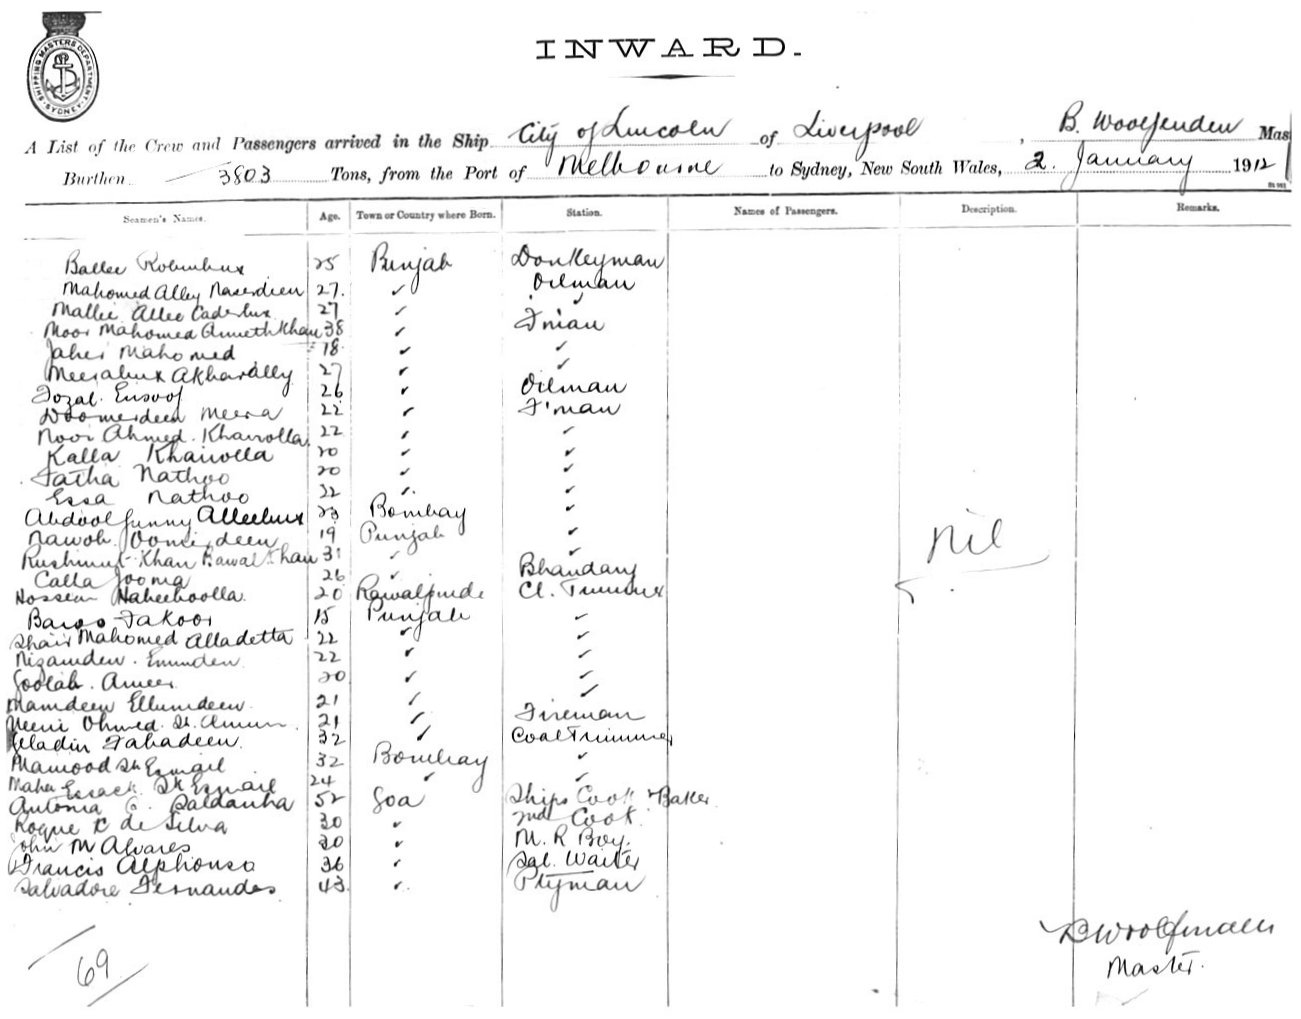 SHIPPING MASTERS DEPARTMENT. SYDNEY
INWARD.
A List of the Crew and Passengers arrived in the Ship City of Lincoln of Liverpool, B. Woolfenden Mas
Burthen 3803 Tons, from the Port of Melbourne to Sydney, New South Wales, 2 January 1912
Seamen's Names. Age. Town or Country where Born. Station. Names of Passengers. Description. Remarks.
Ballee 25 Punjab Donkeyman
Mahomed Alley Naserdeen 27. ✓ Oilman
Mallie Allee Caderbux 27 ✓ ✓
Noor Mahomed Khan 38 ✓ F'man
Jaher Mahomed 18 ✓ ✓
Meerabux Akbarally 27 ✓ ✓
Fozal Ensoof 26 ✓ Oilman
Doomerdeen Meera 22 ✓ F'man
Noor Ahmed Khairolla 22 ✓ ✓
Kalla Khairolla 20 ✓ ✓
Fatha Nathoo 20 ✓ ✓
Essa Nathoo 32 ✓ ✓
Abdool Gunny Alleebux 23 Bombay ✓
Nawob Doomerdeen 19 Punjab ✓
Khan Bawal Khan 31 ✓ ✓
Calla Jooma 26 ✓ Bhandary
Hossein Habeeboolla 20 Rawalpindi Cl. Trimmer
Baroo Fakoor 15 Punjab ✓
Shair Mahomed Alladetta 22 ✓ ✓
Nizamden Emunden 22 ✓ ✓
Goolab Ameer 20 ✓ ✓
Mamdeen Ellumdeen 21 ✓ ✓
Ohmed 21 ✓ Fireman
Fahadeen 32 ✓ Coal Trimmer
Mamood Sk Esmail 32 Bombay ✓
Essack Sk Esmail 24 ✓ ✓
Antonia C. Saldanha 52 Goa Ships Cook & Baker
Roque C de Silva 30 ✓ 2nd Cook
John M Alvares 20 ✓ M. R Boy.
Francis Alphonso 36 ✓ Sal. Waiter
Salvadore Fernandes 43 ✓ P'tyman
Nil
B Woolfenden
Master.
69